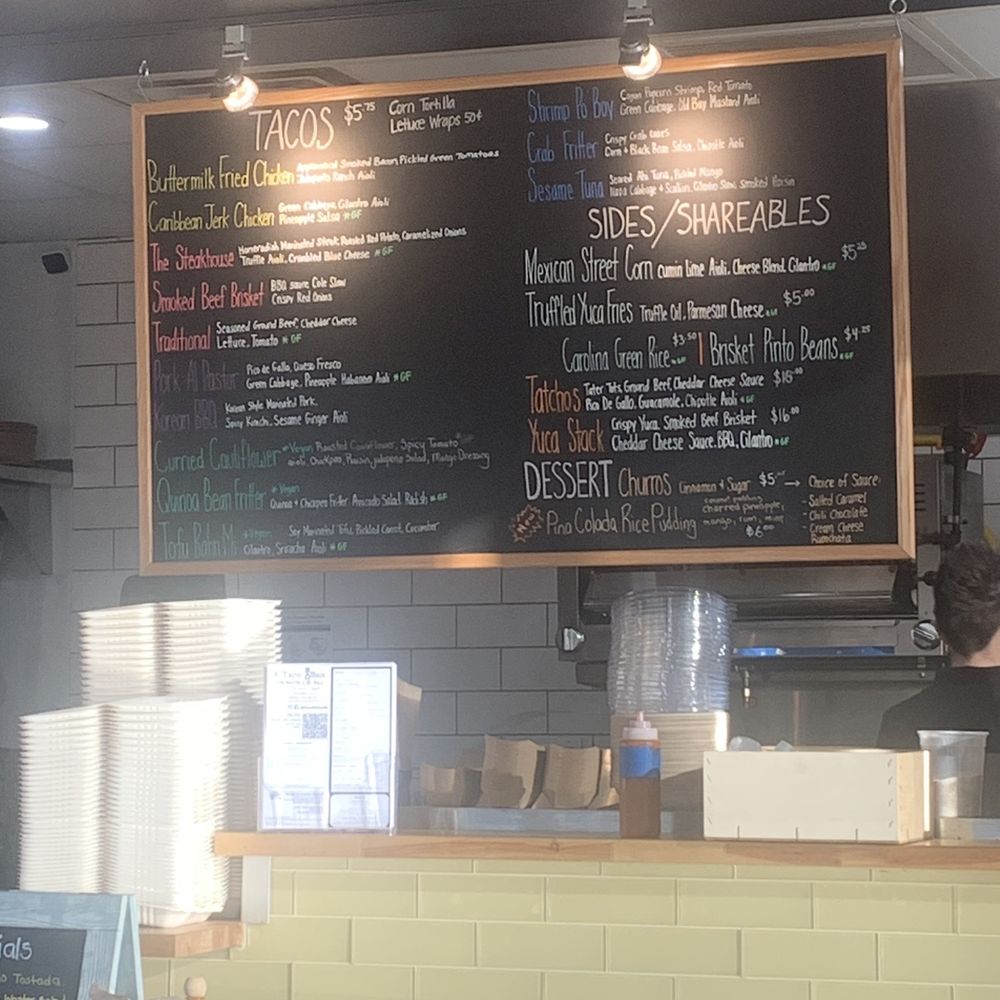 TACOS $5.75
Corn Tortilla
Lettuce Wraps 50¢
Buttermilk Fried Chicken
Smoked Bacon, Pickled Green Tomatoes
Jalapeño Ranch Aioli
Caribbean Jerk Chicken
Green Cabbage, Cilantro Aioli
Pineapple Salsa *GF
The Steakhouse
Horseradish Marinated Steak, Roasted Red Potato, Caramelized Onions
Truffle Aioli, Crumbled Blue Cheese *GF
Smoked Beef Brisket
BBQ sauce, Cole Slaw
Crispy Red Onions
Traditional
Seasoned Ground Beef, Cheddar Cheese
Lettuce, Tomato *GF
Pork Al Pastor
Pico de Gallo, Queso Fresco
Green Cabbage, Pineapple Habanero Aioli *GF
Korean BBQ
Korean Style Marinated Pork,
Spicy Kimchi, Sesame Ginger Aioli
Curried Cauliflower
*Vegan Roasted Cauliflower, Spicy Tomato
aioli, Chickpea, Raisin, jalapeno Salad, Mango Dressing
Quinoa Bean Fritter
*Vegan
Quinoa + Chickpea Fritter, Avocado Salad, Radish *GF
Tofu Bahn Mi
*Vegan
Soy Marinated Tofu, Pickled Carrot, Cucumber
Cilantro, Sriracha Aioli *GF
Shrimp Po Boy
Cajun Popcorn Shrimp, Red Tomato
Green Cabbage, Old Bay Mustard Aioli
Crab Fritter
Crispy Crab Cakes
Corn + Black Bean Salsa, Chipotle Aioli
Sesame Tuna
Seared Ahi Tuna, Pickled Mango
Napa Cabbage + Scallion, Cilantro Slaw, Smoked Hoisin
SIDES/SHAREABLES
Mexican Street Corn cumin Lime Aioli, Cheese Blend, Cilantro *GF $5.25
Truffled Yuca Fries Truffle Oil, Parmesan Cheese *GF $5.00
Carolina Green Rice *GF $3.50 | Brisket Pinto Beans *GF $4.25
Tatchos
Tater Tots, Ground Beef, Cheddar Cheese Sauce $16.00
Pico De Gallo, Guacamole, Chipotle Aioli *GF
Yuca Stack
Crispy Yuca, Smoked Beef Brisket $16.00
Cheddar Cheese Sauce, BBQ, Cilantro *GF
DESSERT Churros Cinnamon + Sugar $5 → Choice of Sauce
- Salted Caramel
- Chili Chocolate
- Cream Cheese
Rumchata
New Pina Colada Rice Pudding
coconut pudding,
charred pineapple,
mango, rum, mint
$6.00
ials
o Tostada